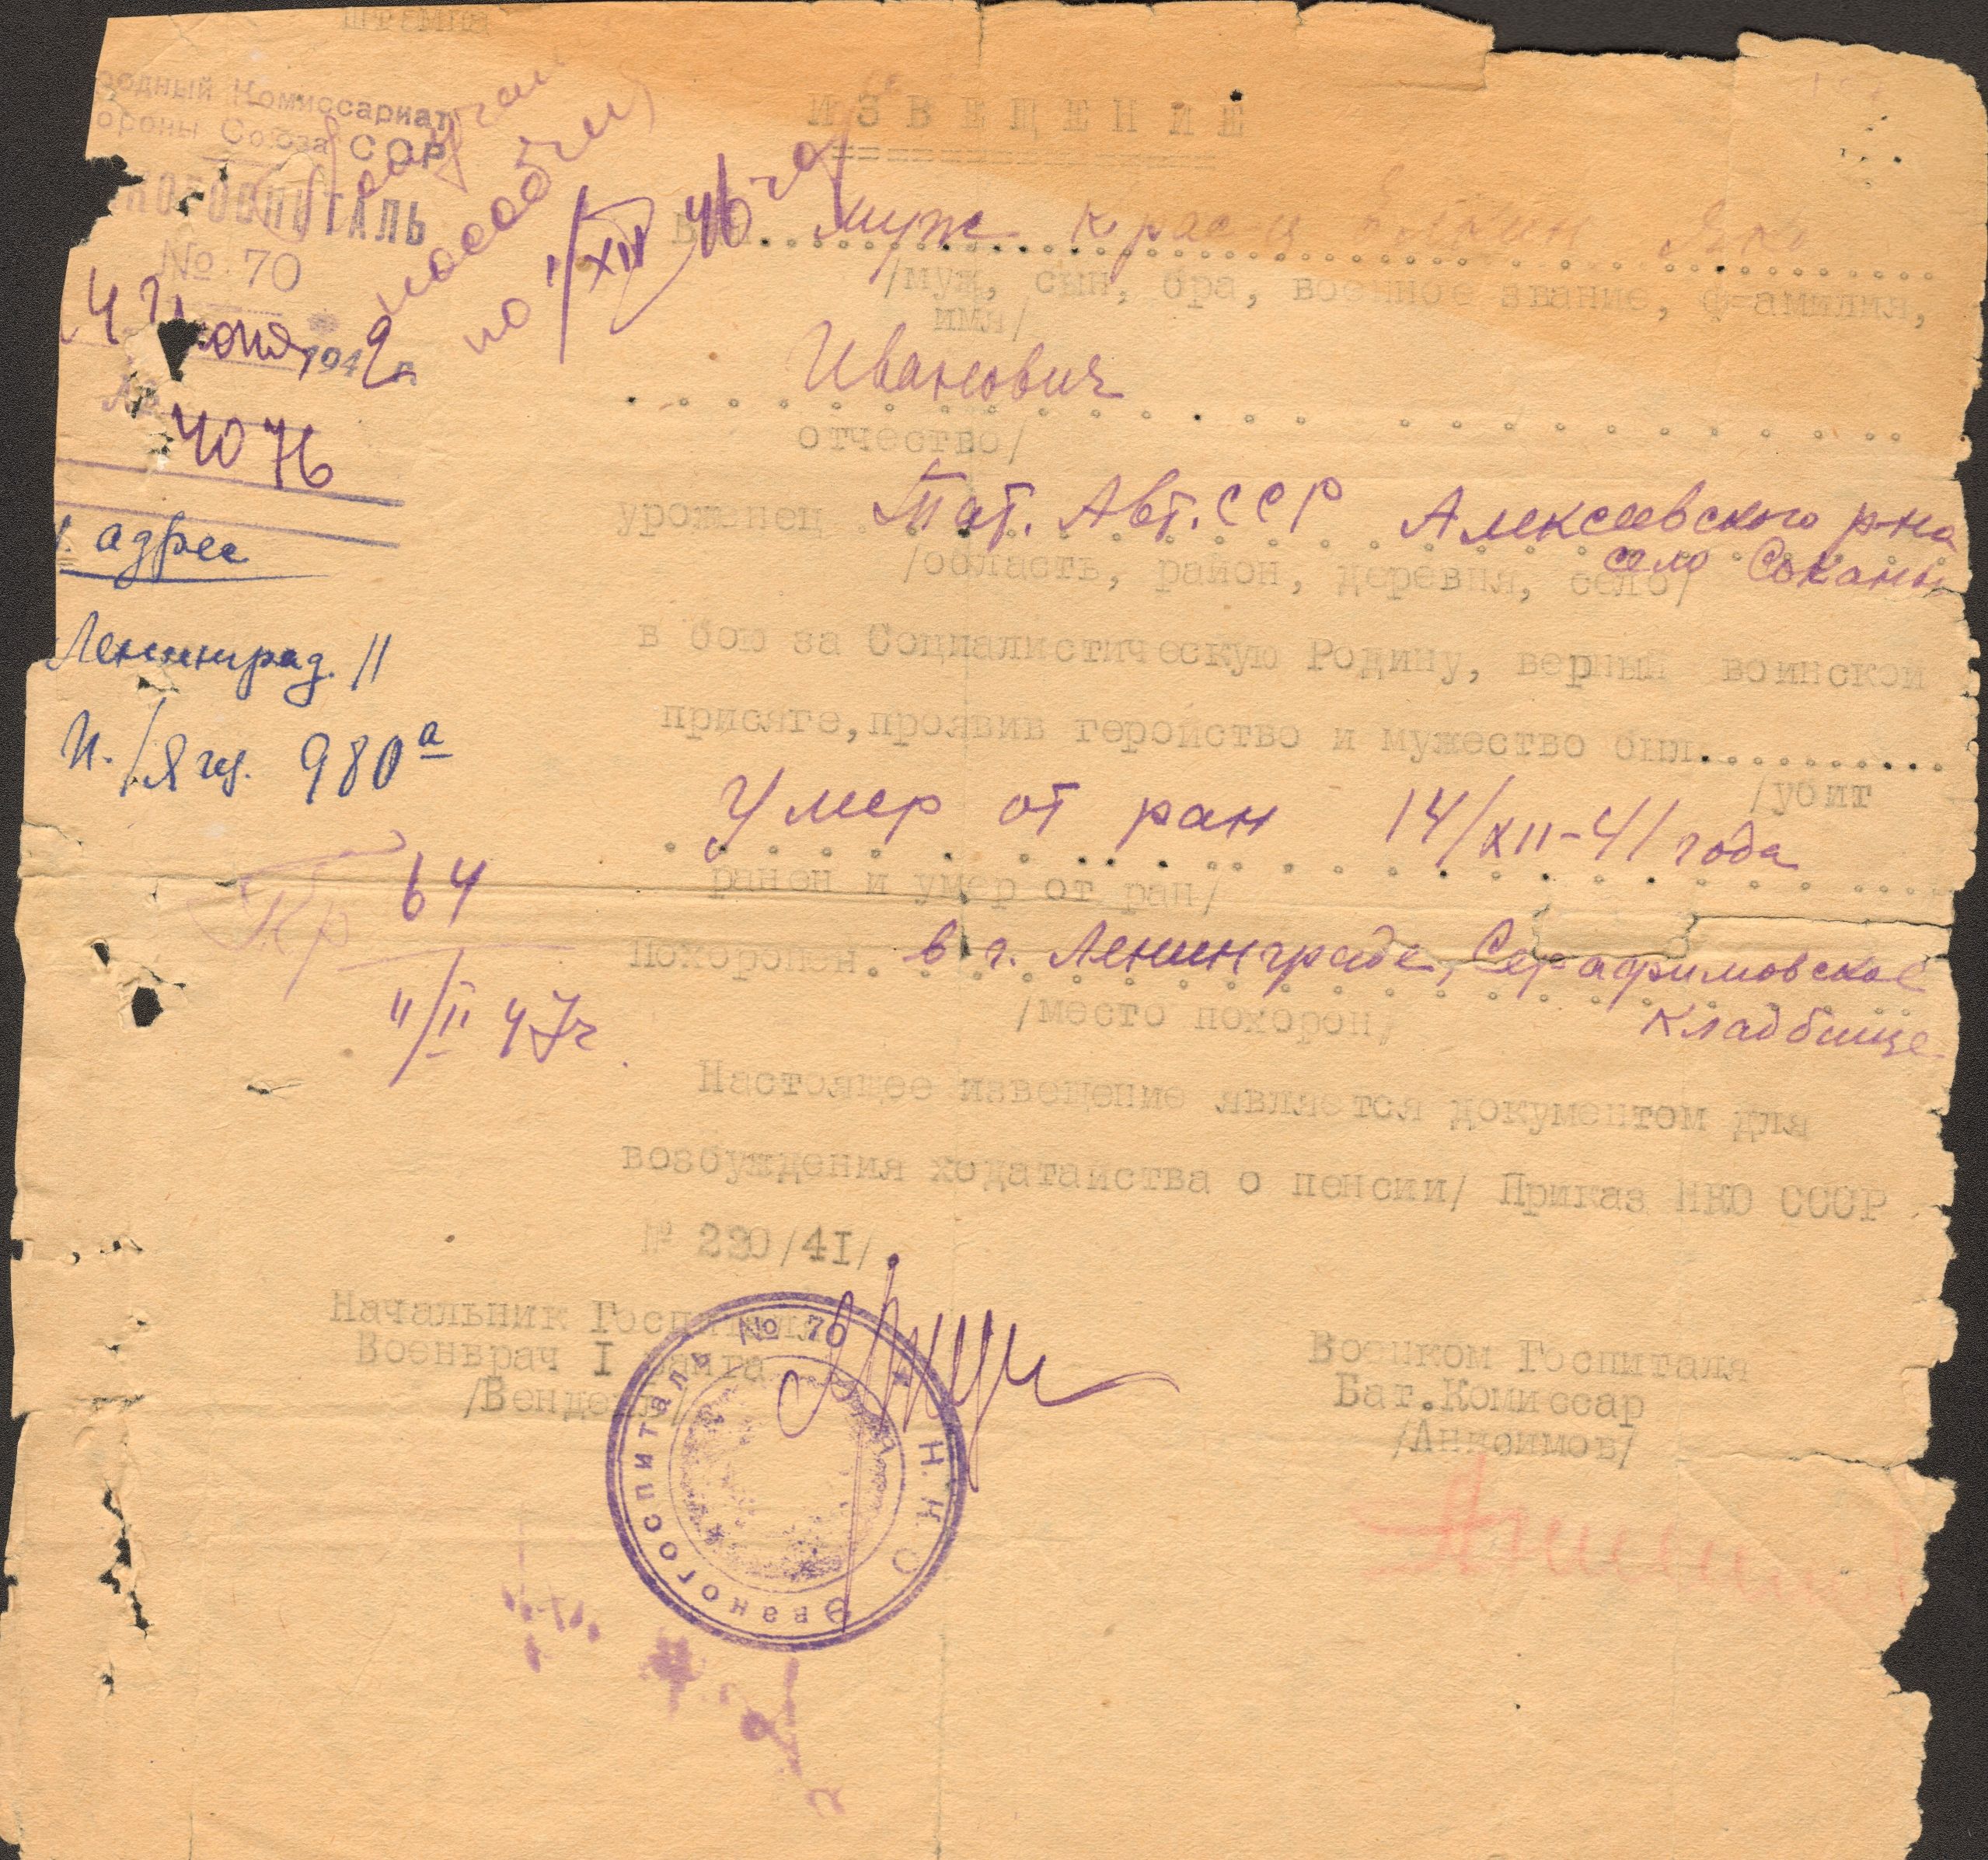 штемпе
родный Комиссариат
ороны Союза ССР
КОГОСПИТАЛЬ
№ 70
4 июня 1942 г.
№ 4076
адрес
Ленинград 11
П./Ящ. 980а
Пр 64
11/II 47г.
пособии
по 1/XII 46 год
ИЗВЕЩЕНИЕ
====================
Ваш. муж красн Яков
/муж, сын, бра, военное звание, ф=амилия,
имя/
Иванович
отчество/
уроженец Тат. Авт. ССР Алексеевского р-на
село Соканы
/область, район, деревня, село/
в бою за Социалистическую Родину, верный воинской
присяге, проявив геройство и мужество был..........
/убит
Умер от ран 14/XII-41 года
ранен и умер от ран/
Похоронен. в г. Ленинграде, Серафимовское
Кладбище
/место похорон/
Настоящее извещение является документом для
возбуждения ходатайства о пенсии/ Приказ НКО СССР
№ 220/41/.
Начальник Госпиталя
Военврач I ранга
/Вендель/
Военком Госпиталя
Бат.Комиссар
/Анисимов/
Эвакогоспиталь № 70 ★ Н.К.О